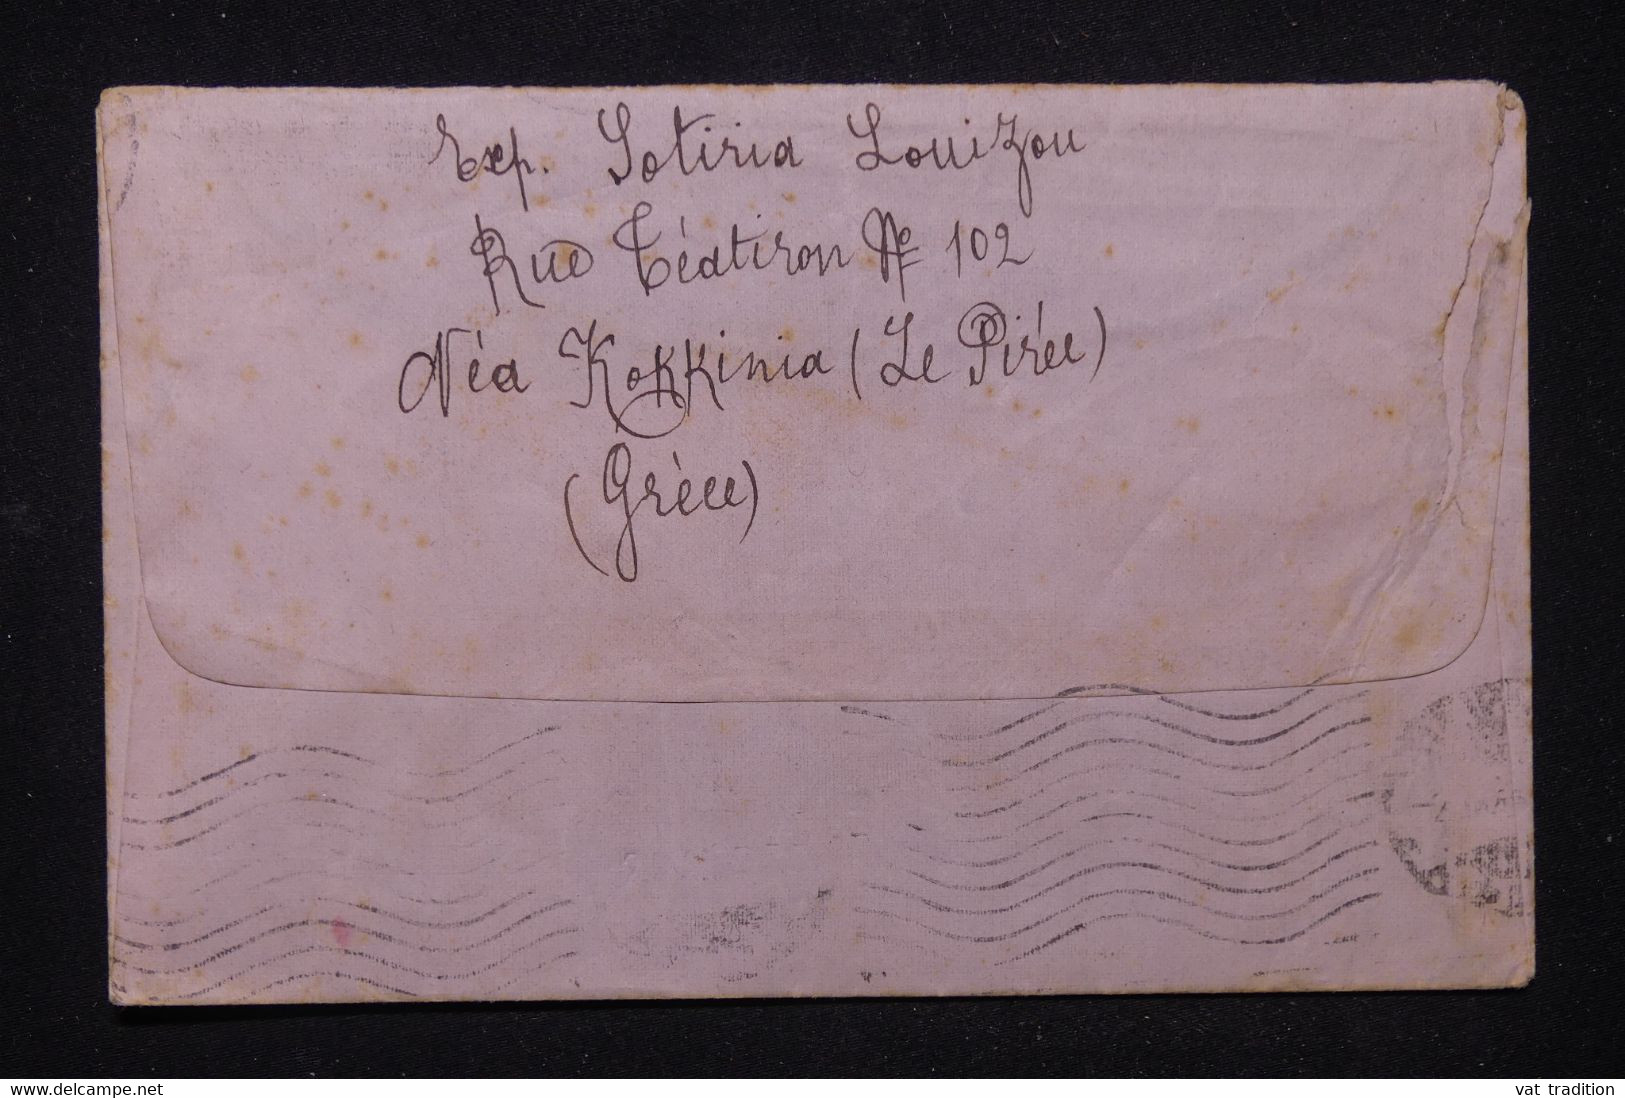 Exp. Sotiria Louizou
Rue Téatiron Nº 102
Néa Kokkinia (Le Pirée)
(Grèce)
delcampe.net
vat tradition